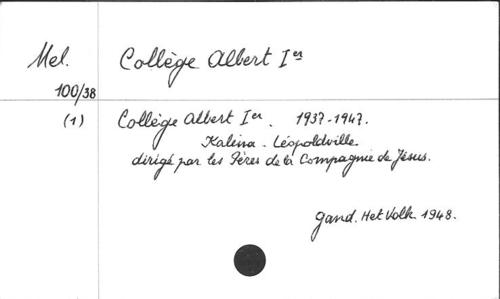 Mel. Collège Albert Ier
100/38
(1) Collège Albert Ier. 1937-1947.
Kalina - Léopoldville.
dirigé par les Pères de la Compagnie de Jésus.
Gand. Het Volk. 1948.